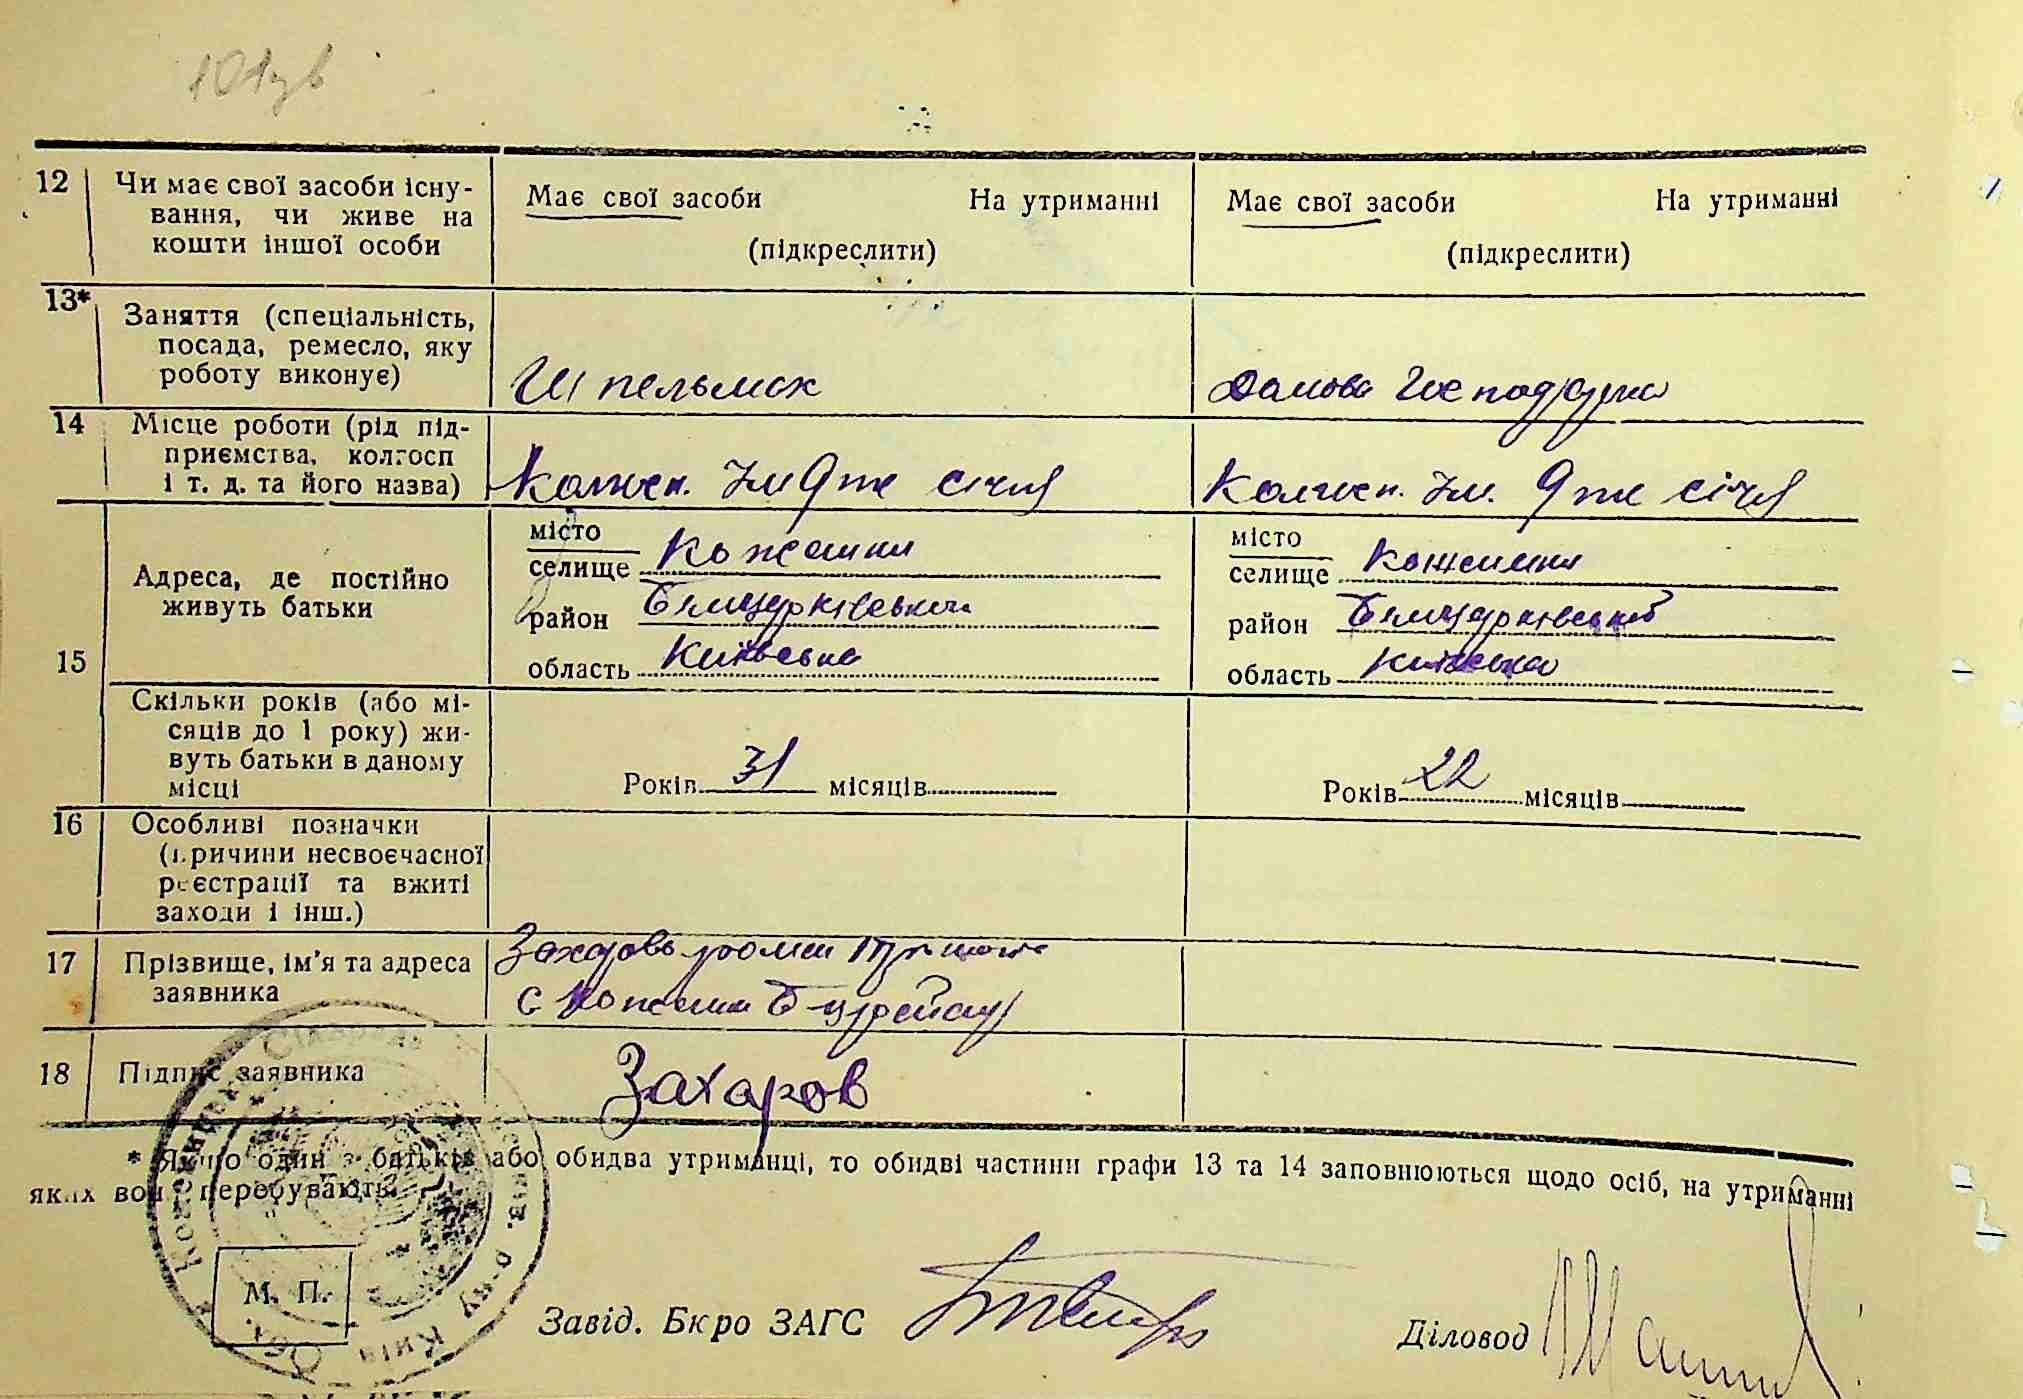 101зв
12 Чи має свої засоби існу-
вання, чи живе на
кошти іншої особи
Має свої засоби На утриманні
(підкреслити)
Має свої засоби На утриманні
(підкреслити)
13* Заняття (спеціальність,
посада, ремесло, яку
роботу виконує)
Домова
14 Місце роботи (рід під-
приємства, колгосп
і т. д. та його назва)
Колгосп. Ім 9те січня
Колгосп. Ім. 9те січня
15 Адреса, де постійно
живуть батьки
місто
селище Кожанки
район Білоцерківський
область Київська
місто
селище Кожанки
район Білоцерківський
область Київська
Скільки років (або мі-
сяців до 1 року) жи-
вуть батьки в даному
місці
Років 31 місяців
Років 22 місяців
16 Особливі позначки
(причини несвоєчасної
реєстрації та вжиті
заходи і інш.)
17 Прізвище, ім'я та адреса
заявника
Захаров
с Кожанки
18 Підпис заявника
Захаров
* Якщо один з батьків або обидва утриманці, то обидві частини графи 13 та 14 заповнюються щодо осіб, на утриманні
яких вони перебувають.
М. П.
Завід. Бюро ЗАГС
Діловод